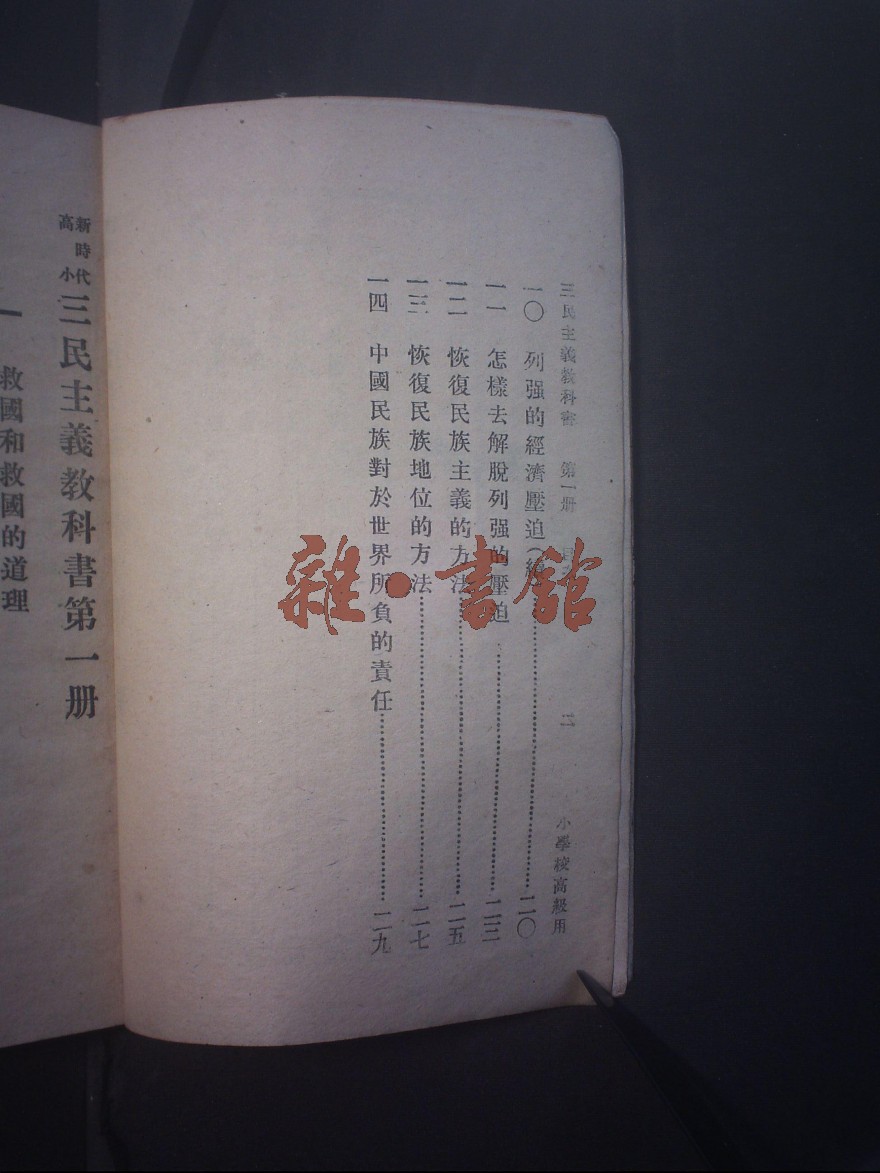 三民主義教科書 第一册 目 二 小學校高級用
一〇 列强的經濟壓迫(續…………二〇
一一 怎樣去解脫列强的壓迫…………二三
一二 恢復民族主義的方法…………二五
一三 恢復民族地位的方法…………二七
一四 中國民族對於世界所負的責任…………二九
新時代
高小
三民主義教科書第一册
一 救國和救國的道理
雜·書館